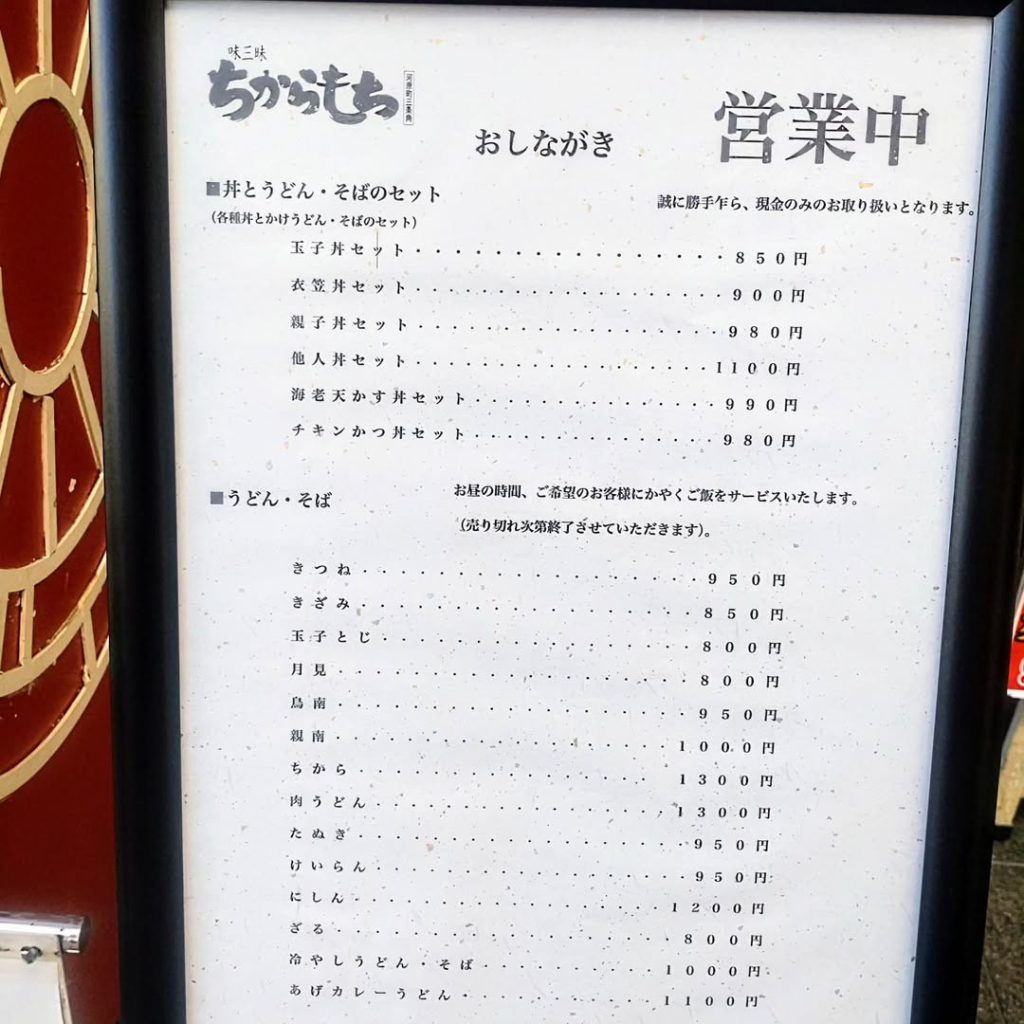 味三昧
ちからもち
河原町三条角
おしながき
営業中
■丼とうどん・そばのセット
(各種丼とかけうどん・そばのセット)
誠に勝手乍ら、現金のみのお取り扱いとなります。
玉子丼セット・・・・・・・・・・・・・・・・850円
衣笠丼セット・・・・・・・・・・・・・・・・900円
親子丼セット・・・・・・・・・・・・・・・・980円
他人丼セット・・・・・・・・・・・・・・・1100円
海老天かす丼セット・・・・・・・・・・・・・990円
チキンかつ丼セット・・・・・・・・・・・・・980円
■うどん・そば
お昼の時間、ご希望のお客様にかやくご飯をサービスいたします。
(売り切れ次第終了させていただきます)。
きつね・・・・・・・・・・・・・・・・・・950円
きざみ・・・・・・・・・・・・・・・・・・850円
玉子とじ・・・・・・・・・・・・・・・・・800円
月見・・・・・・・・・・・・・・・・・・・800円
鳥南・・・・・・・・・・・・・・・・・・・950円
親南・・・・・・・・・・・・・・・・・・1000円
ちから・・・・・・・・・・・・・・・・1300円
肉うどん・・・・・・・・・・・・・・・1300円
たぬき・・・・・・・・・・・・・・・・・・950円
けいらん・・・・・・・・・・・・・・・・・950円
にしん・・・・・・・・・・・・・・・・・1200円
ざる・・・・・・・・・・・・・・・・・・・800円
冷やしうどん・そば・・・・・・・・・・1000円
あげカレーうどん・・・・・・・・・・・1100円